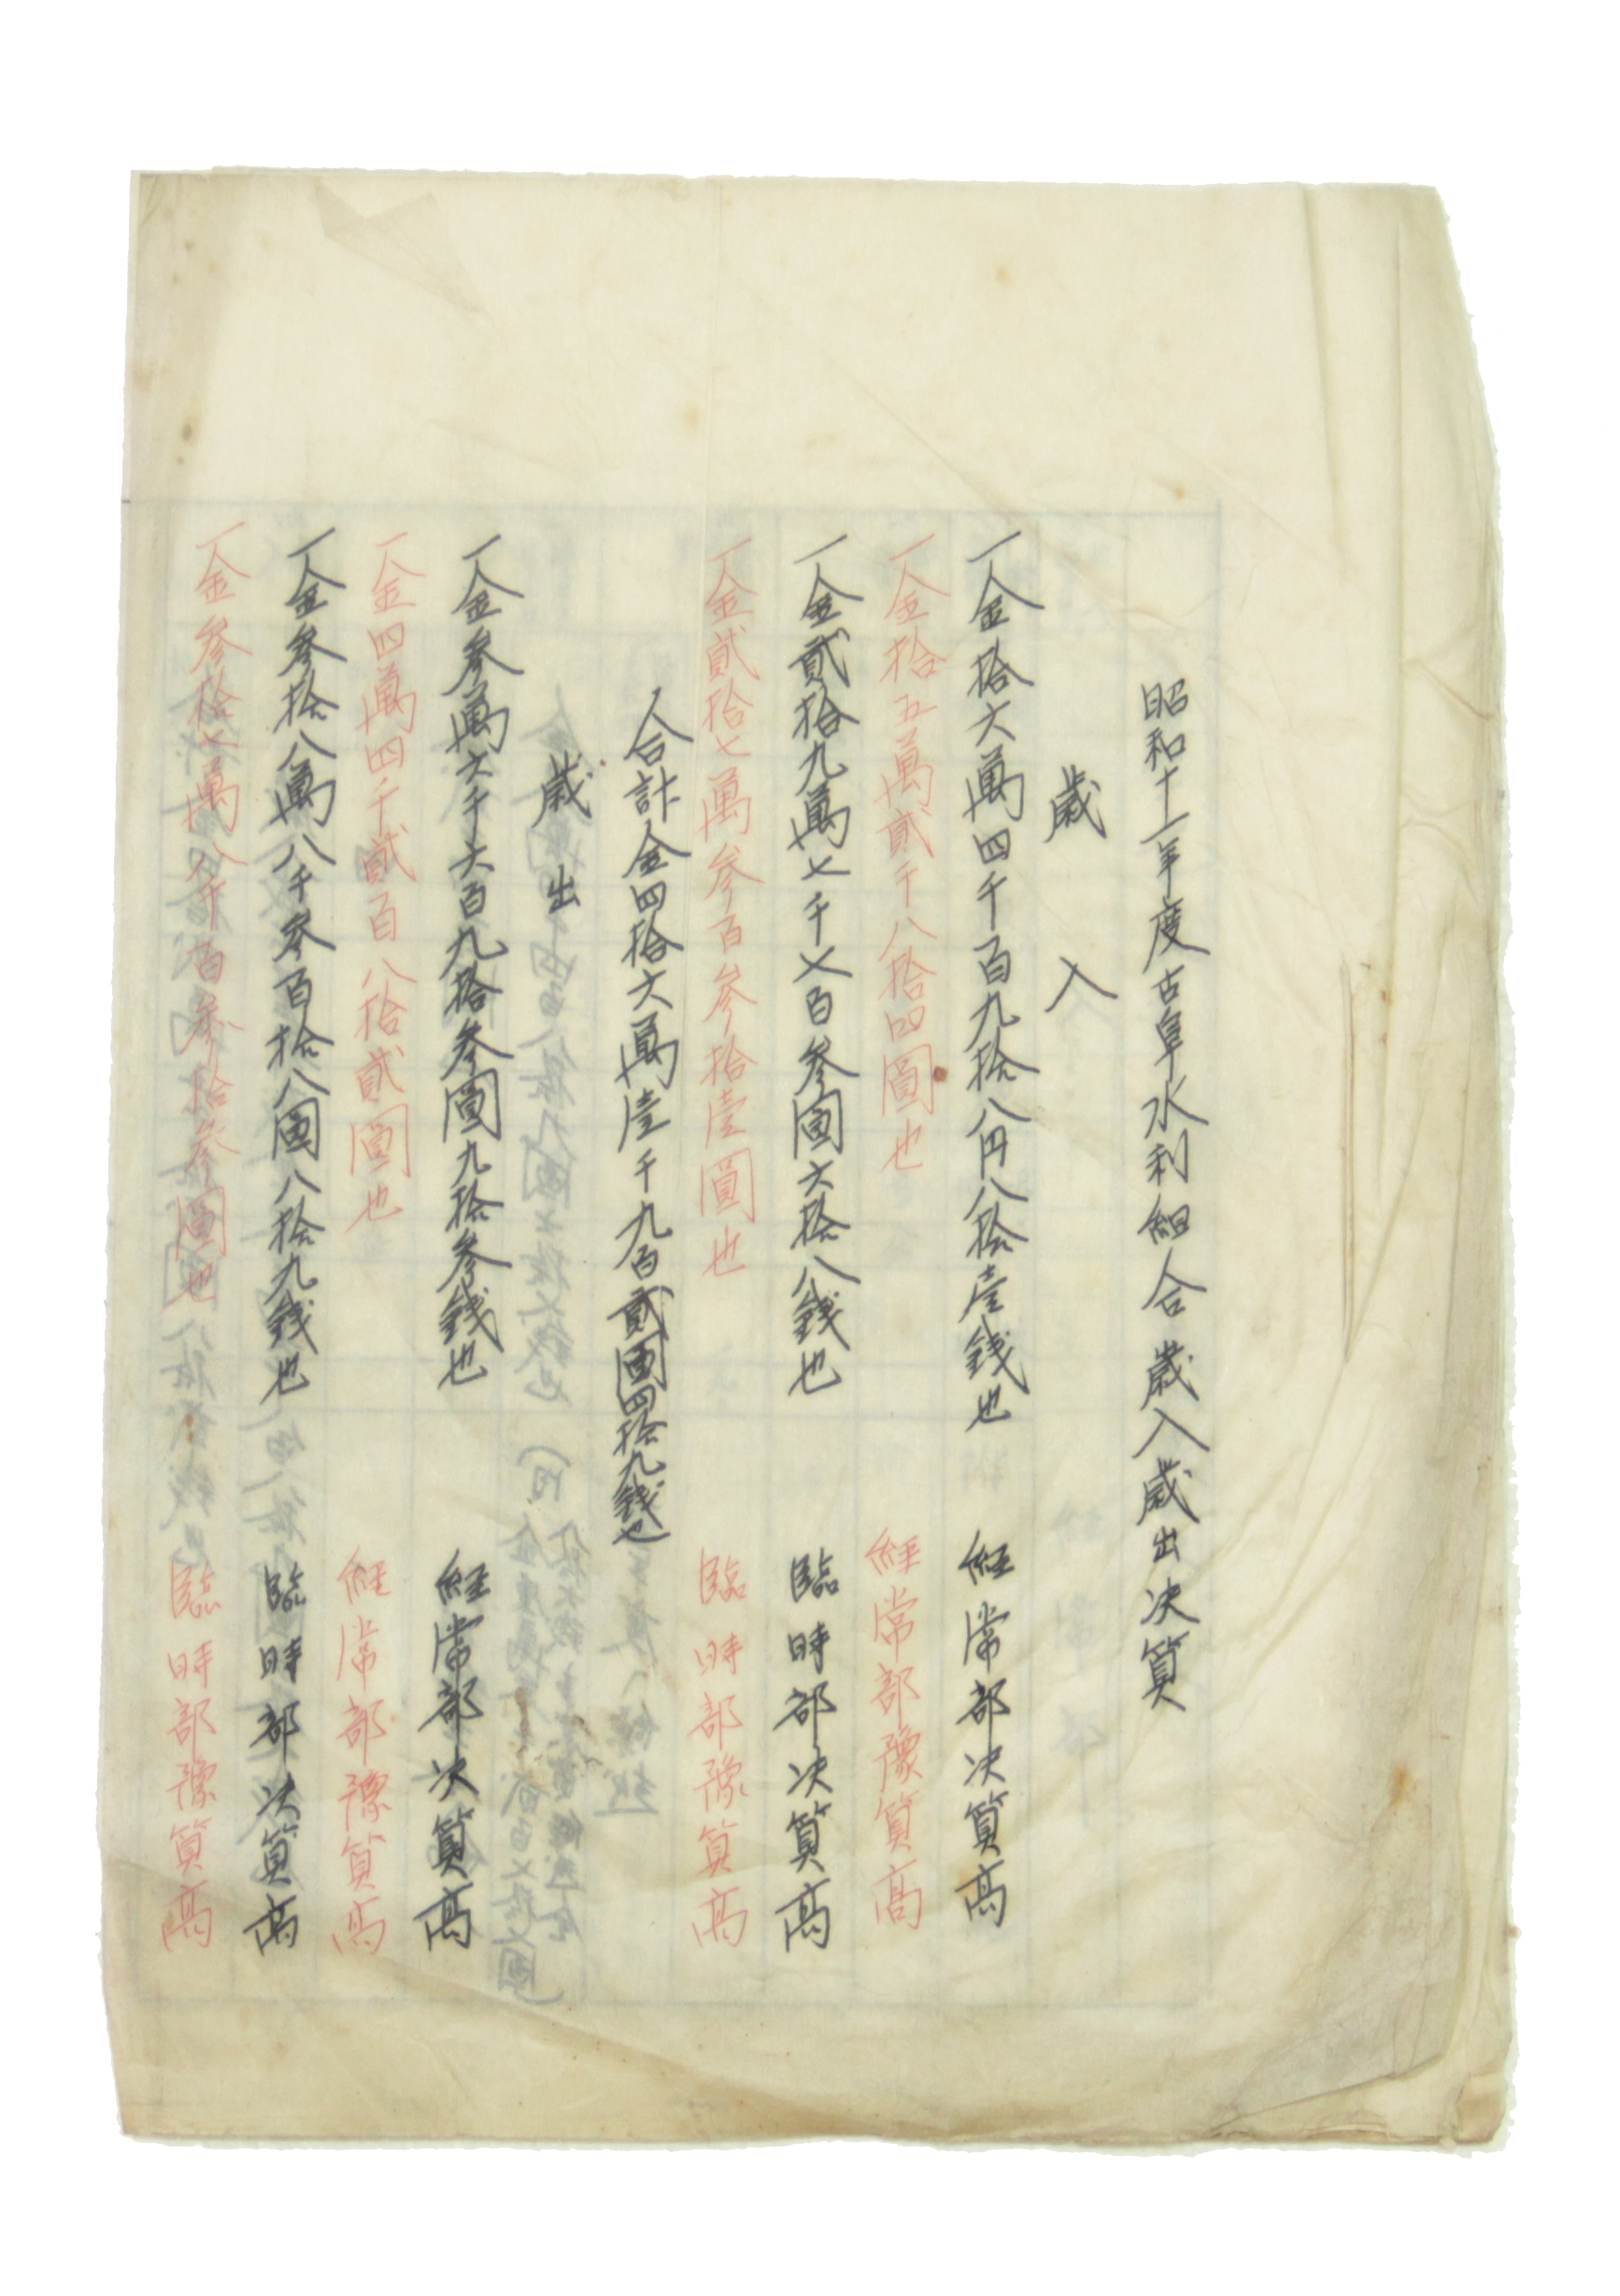 昭和十一年度古阜水利組合歳入歳出決算
歳入
一金拾六萬四千百九拾八円八拾壹銭也 経常部決算高
一金拾五萬貳千八拾四圓也 経常部豫算高
一金貳拾九萬七千七百参圓六拾八銭也 臨時部決算高
一金貳拾七萬参百参拾壹圓也 臨時部豫算高
合計金四拾六萬壹千九百貳圓四拾九銭也
歳出
一金参萬六千六百九拾参圓九拾参銭也 経常部決算高
一金四萬四千貳百八拾貳圓也 経常部豫算高
一金参拾八萬八千参百拾八圓八拾九銭也 臨時部決算高
一金参拾七萬八千百参拾参圓也 臨時部豫算高